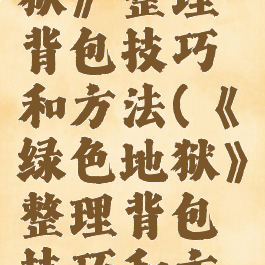 狱》整理
背包技巧
和方法(《
绿色地狱》
整理背包
技巧和方